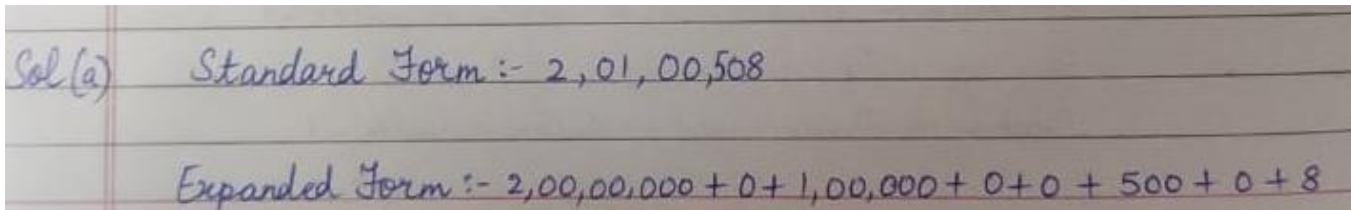 Sol(a) Standard Form :- 2,01,00,508
Expanded Form :- 2,00,00,000 + 0 + 1,00,000 + 0 + 0 + 500 + 0 + 8